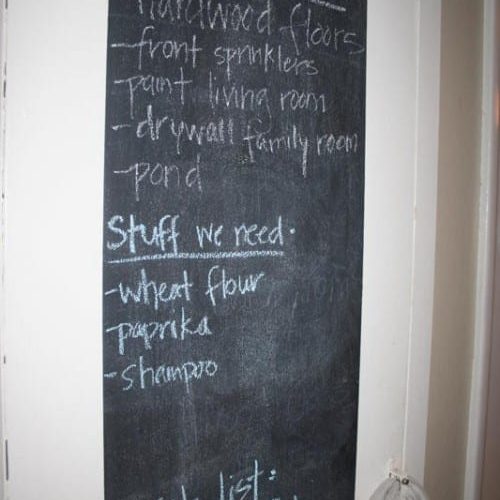 hardwood floors
-front sprinklers
-paint living room
-drywall family room
-pond
Stuff we need.
-wheat flour
-paprika
-shampoo
list: